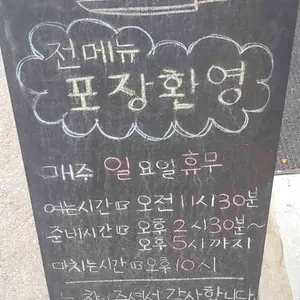 전메뉴
포장환영
매주 일요일 휴무
여는시간 오전 11시30분
준비시간 오후 2시30분~
오후 5시까지
마치는시간 오후 10시
찾아주셔서 감사합니다